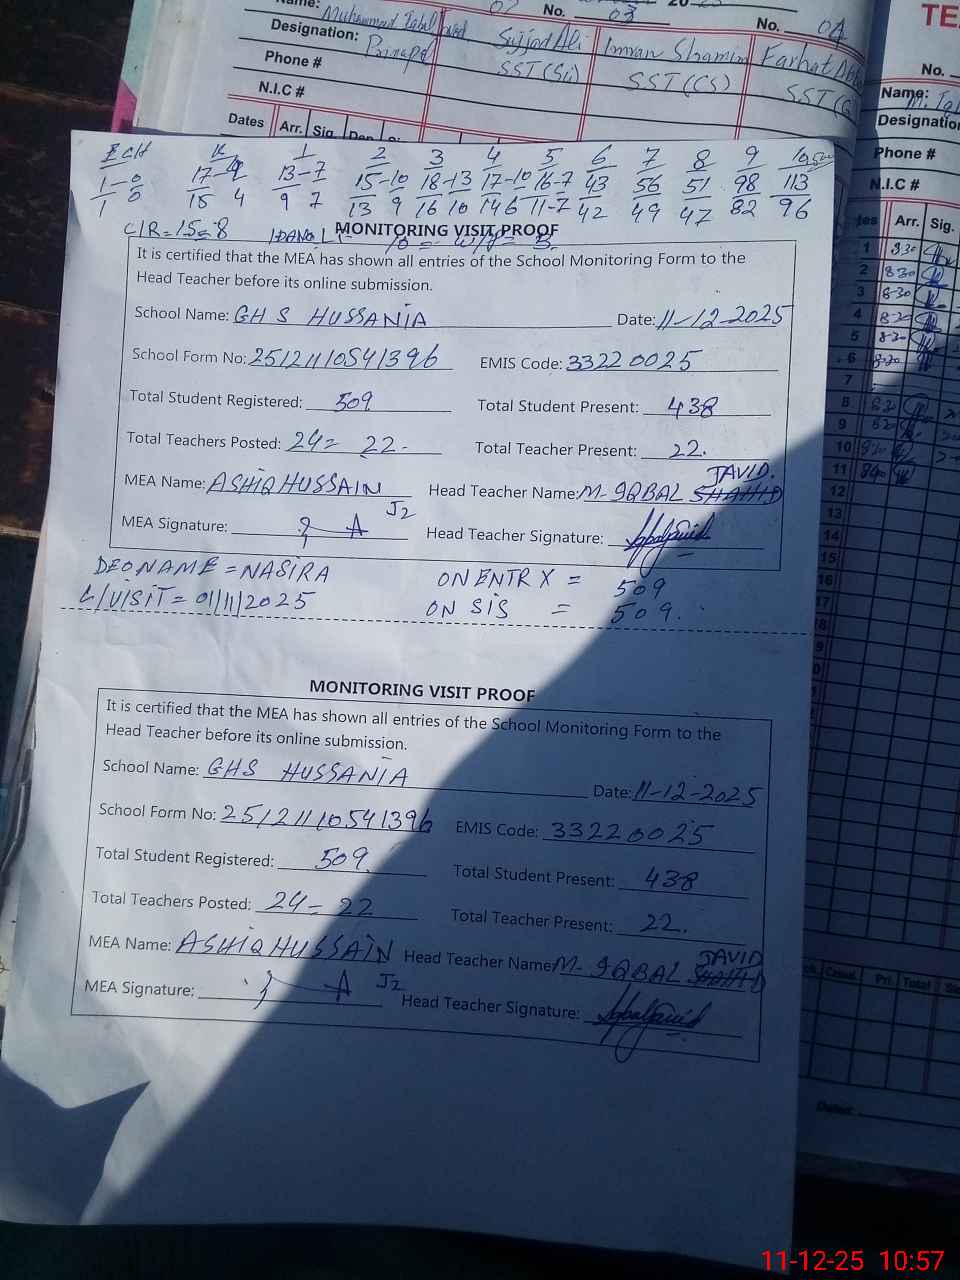 Name: Muhammad Iqbal Javid
Designation: Principal
Phone #
N.I.C #
No. 03
Sajjad Ali
SST (Sci)
Imran Shamim
SST (CS)
No. 04
Farhat
Dates Arr. Sig. Dep.
No.
Name:
Designation
Phone #
N.I.C #
Arr. Sig.
ECH K 1 2 3 4 5 6 7 8 9 10
1-0 17-4 13-7 15-10 18-13 17-10 16-7 43 56 51 98 113
1 0 15 4 9 7 13 9 16 10 14 6 11-7 42 49 47 82 96
C/R=15=8
MONITORING VISIT PROOF
It is certified that the MEA has shown all entries of the School Monitoring Form to the
Head Teacher before its online submission.
School Name: GHS HUSSANIA Date: 11-12-2025
School Form No: 25121110541396 EMIS Code: 33220025
Total Student Registered: 509 Total Student Present: 438
Total Teachers Posted: 24= 22- Total Teacher Present: 22.
MEA Name: ASHIQ HUSSAIN Head Teacher Name: M-IQBAL SHAHID JAVID.
MEA Signature: J2 Head Teacher Signature: Iqbal Javid
DEO NAME = NASIRA ON ENTRX = 509
L/VISIT = 01/11/2025 ON SIS = 509.
MONITORING VISIT PROOF
It is certified that the MEA has shown all entries of the School Monitoring Form to the
Head Teacher before its online submission.
School Name: GHS HUSSANIA Date: 11-12-2025
School Form No: 25121110541396 EMIS Code: 33220025
Total Student Registered: 509. Total Student Present: 438
Total Teachers Posted: 24= 22 Total Teacher Present: 22.
MEA Name: ASHIQ HUSSAIN Head Teacher Name: M-IQBAL SHAHID JAVID
MEA Signature: J2 Head Teacher Signature: Iqbal Javid
1 8.30
2 8.30
3 8.30
4
5
6
7
8
9
10
11
12
13
14
15
16
17
Casual Pri. Total
11-12-25 10:57